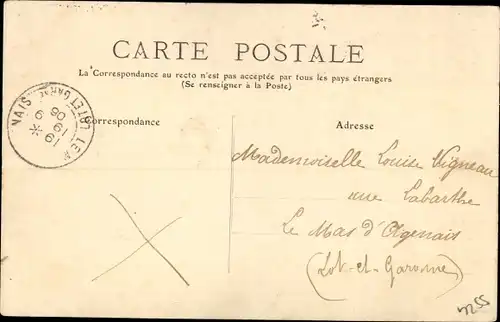 CARTE POSTALE
La Correspondance au recto n'est pas acceptée par tous les pays étrangers
(Se renseigner à la Poste)
NAIS LOT ET GARNE
19 9
06
Correspondance
Adresse
Mademoiselle Louise Vigneau
rue Labarthe
Le Mas d'Agenais
(Lot-et-Garonne)